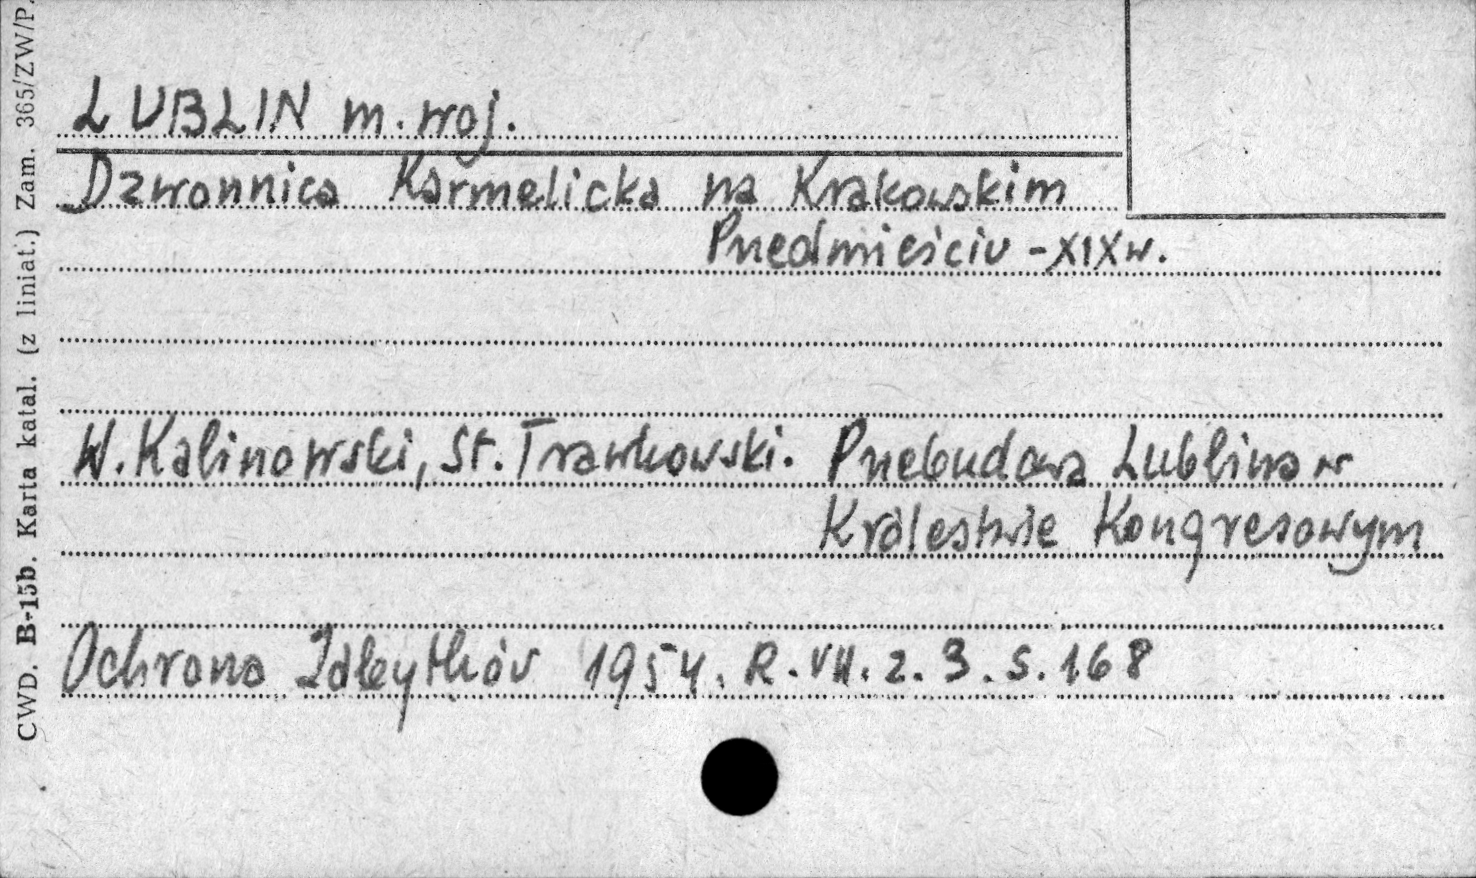 LUBLIN m. woj.
Dzwonnica Karmelicka na Krakowskim
Przedmieściu - XIX w.
W. Kalinowski, St. Trawkowski. Przebudowa Lublina w
Królestwie Kongresowym
Ochrona Zabytków 1954. R. VII. z. 3. s. 168
CWD. B-15b. Karta katal. (z liniat.) Zam. 365/ZW/P.